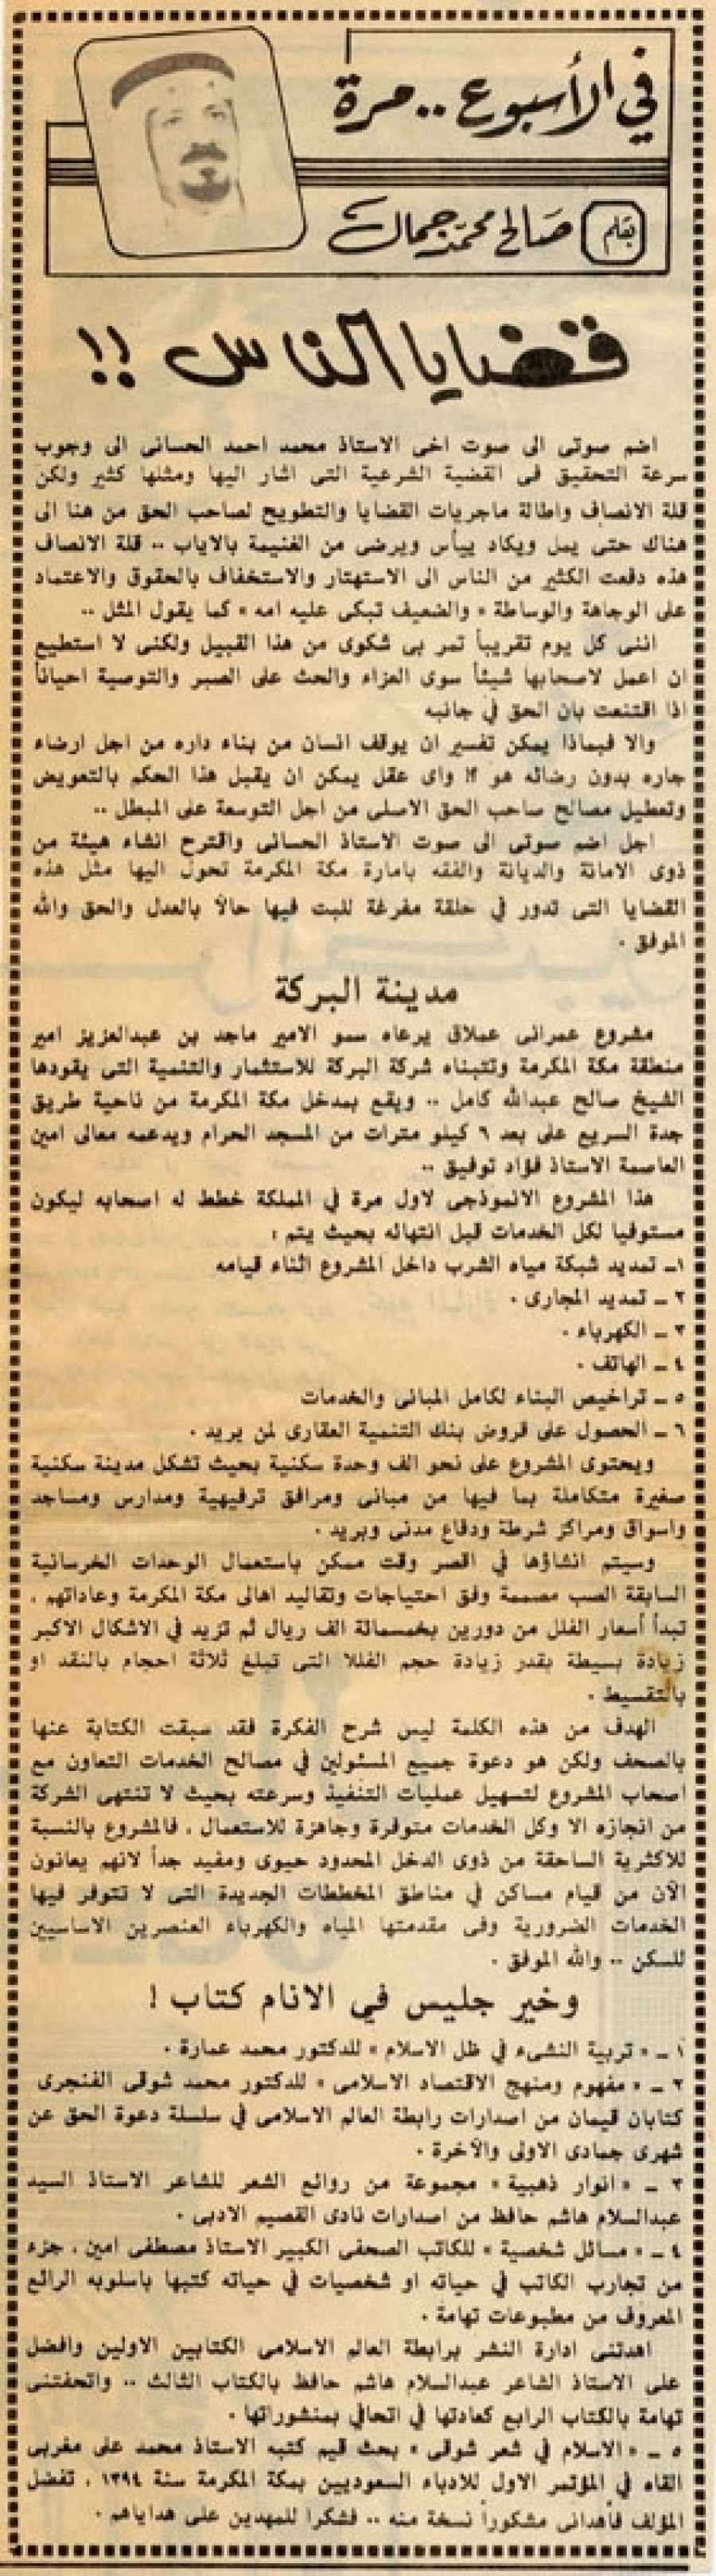 في الأسبوع .. مرة
بقلم صالح محمد جمال
قضايا الناس !!
اضم صوتى الى صوت اخى الاستاذ محمد احمد الحسانى الى وجوب
سرعة التحقيق فى القضية الشرعية التى اشار اليها ومثلها كثير ولكن
قلة الانصاف واطالة ماجريات القضايا والتطويح لصاحب الحق من هنا الى
هناك حتى يمل ويكاد ييأس ويرضى من الغنيمة بالاياب .. قلة الانصاف
هذه دفعت الكثير من الناس الى الاستهتار والاستخفاف بالحقوق والاعتماد
على الوجاهة والوساطة « والضعيف تبكى عليه امه » كما يقول المثل ..
اننى كل يوم تقريباً تمر بى شكوى من هذا القبيل ولكنى لا استطيع
ان اعمل لاصحابها شيئاً سوى العزاء والحث على الصبر والتوصية احياناً
اذا اقتنعت بان الحق في جانبه
والا فبماذا يمكن تفسير ان يوقف انسان من بناء داره من اجل ارضاء
جاره بدون رضائه هو ؟! واى عقل يمكن ان يقبل هذا الحكم بالتعويض
وتعطيل مصالح صاحب الحق الاصلى من اجل التوسعة على المبطل ..
اجل اضم صوتى الى صوت الاستاذ الحسانى واقترح انشاء هيئة من
ذوى الامانة والديانة والفقه بامارة مكة المكرمة تحول اليها مثل هذه
القضايا التى تدور في حلقة مفرغة للبت فيها حالاً بالعدل والحق والله
الموفق .
مدينة البركة
مشروع عمرانى عملاق يرعاه سمو الامير ماجد بن عبدالعزيز امير
منطقة مكة المكرمة وتتبناه شركة البركة للاستثمار والتنمية التى يقودها
الشيخ صالح عبدالله كامل .. ويقع بمدخل مكة المكرمة من ناحية طريق
جدة السريع على بعد ٦ كيلو مترات من المسجد الحرام ويدعمه معالى امين
العاصمة الاستاذ فؤاد توفيق ..
هذا المشروع الانموذجى لاول مرة في المملكة خطط له اصحابه ليكون
مستوفيا لكل الخدمات قبل انتهائه بحيث يتم :
١ـ تمديد شبكة مياه الشرب داخل المشروع اثناء قيامه
٢ ـ تمديد المجارى .
٣ ـ الكهرباء .
٤ ـ الهاتف .
٥ ـ تراخيص البناء لكامل المبانى والخدمات
٦ ـ الحصول على قروض بنك التنمية العقارى لمن يريد .
ويحتوى المشروع على نحو الف وحدة سكنية بحيث تشكل مدينة سكنية
صغيرة متكاملة بما فيها من مبانى ومرافق ترفيهية ومدارس ومساجد
واسواق ومراكز شرطة ودفاع مدنى وبريد .
وسيتم انشاؤها في اقصر وقت ممكن باستعمال الوحدات الخرسانية
السابقة الصب مصممة وفق احتياجات وتقاليد اهالى مكة المكرمة وعاداتهم .
تبدأ أسعار الفلل من دورين بخمسمائة الف ريال ثم تزيد في الاشكال الاكبر
زيادة بسيطة بقدر زيادة حجم الفللا التى تبلغ ثلاثة احجام بالنقد او
بالتقسيط .
الهدف من هذه الكلمة ليس شرح الفكرة فقد سبقت الكتابة عنها
بالصحف ولكن هو دعوة جميع المسئولين في مصالح الخدمات التعاون مع
اصحاب المشروع لتسهيل عمليات التنفيذ وسرعته بحيث لا تنتهى الشركة
من انجازه الا وكل الخدمات متوفرة وجاهزة للاستعمال . فالمشروع بالنسبة
للاكثرية الساحقة من ذوى الدخل المحدود حيوى ومفيد جداً لانهم يعانون
الآن من قيام مساكن في مناطق المخططات الجديدة التى لا تتوفر فيها
الخدمات الضرورية وفى مقدمتها المياه والكهرباء العنصرين الاساسيين
للسكن .. والله الموفق .
وخير جليس في الانام كتاب !
١ ـ « تربية النشىء في ظل الاسلام » للدكتور محمد عمارة .
٢ ـ « مفهوم ومنهج الاقتصاد الاسلامى » للدكتور محمد شوقى الفنجرى
كتابان قيمان من اصدارات رابطة العالم الاسلامى في سلسلة دعوة الحق عن
شهرى جمادى الاولى والآخرة .
٣ ـ « انوار ذهبية » مجموعة من روائع الشعر للشاعر الاستاذ السيد
عبدالسلام هاشم حافظ من اصدارات نادى القصيم الادبى .
٤ ـ « مسائل شخصية » للكاتب الصحفى الكبير الاستاذ مصطفى امين . جزء
من تجارب الكاتب في حياته او شخصيات في حياته كتبها باسلوبه الرائع
المعروف من مطبوعات تهامة .
اهدتنى ادارة النشر برابطة العالم الاسلامى الكتابين الاولين وافضل
على الاستاذ الشاعر عبدالسلام هاشم حافظ بالكتاب الثالث .. واتحفتنى
تهامة بالكتاب الرابع كعادتها في اتحافي بمنشوراتها .
٥ ـ « الاسلام في شعر شوقى » بحث قيم كتبه الاستاذ محمد على مغربى
القاه في المؤتمر الاول للادباء السعوديين بمكة المكرمة سنة ١٣٩٤ . تفضل
المؤلف فأهدانى مشكوراً نسخة منه .. فشكرا للمهدين على هداياهم .